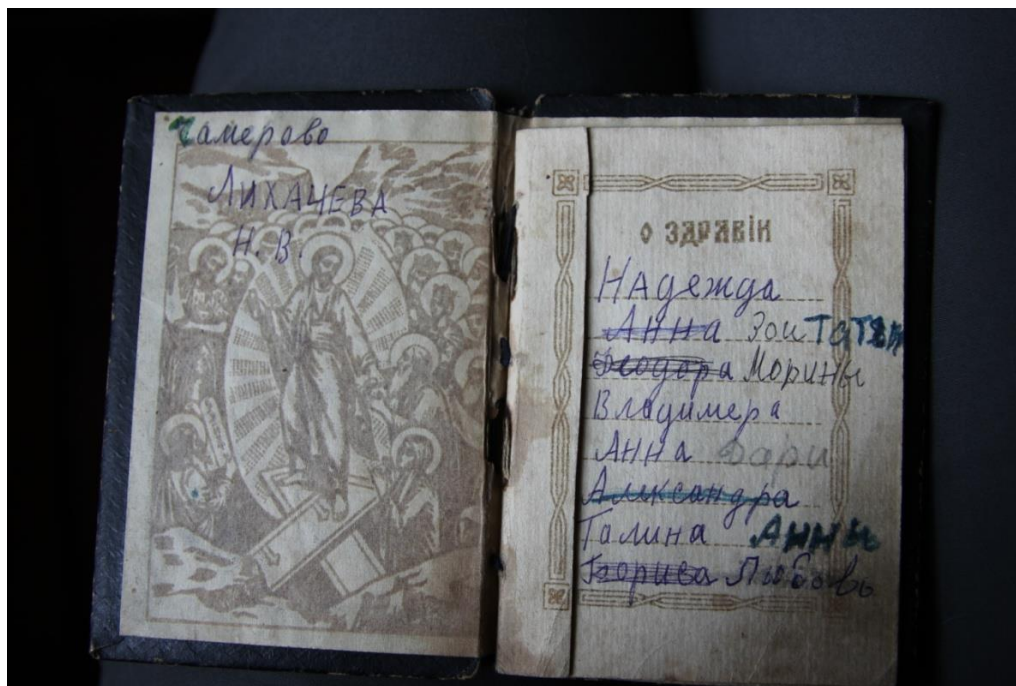 Чамерово
ЛИХАЧЕВА
Н. В.
О ЗДРАВІИ
Надежда
Анна Зои ТАТЯН
Феодора Морины
Владимера
Анна Дари
Александра
Галина АННЫ
Бориса Любовь